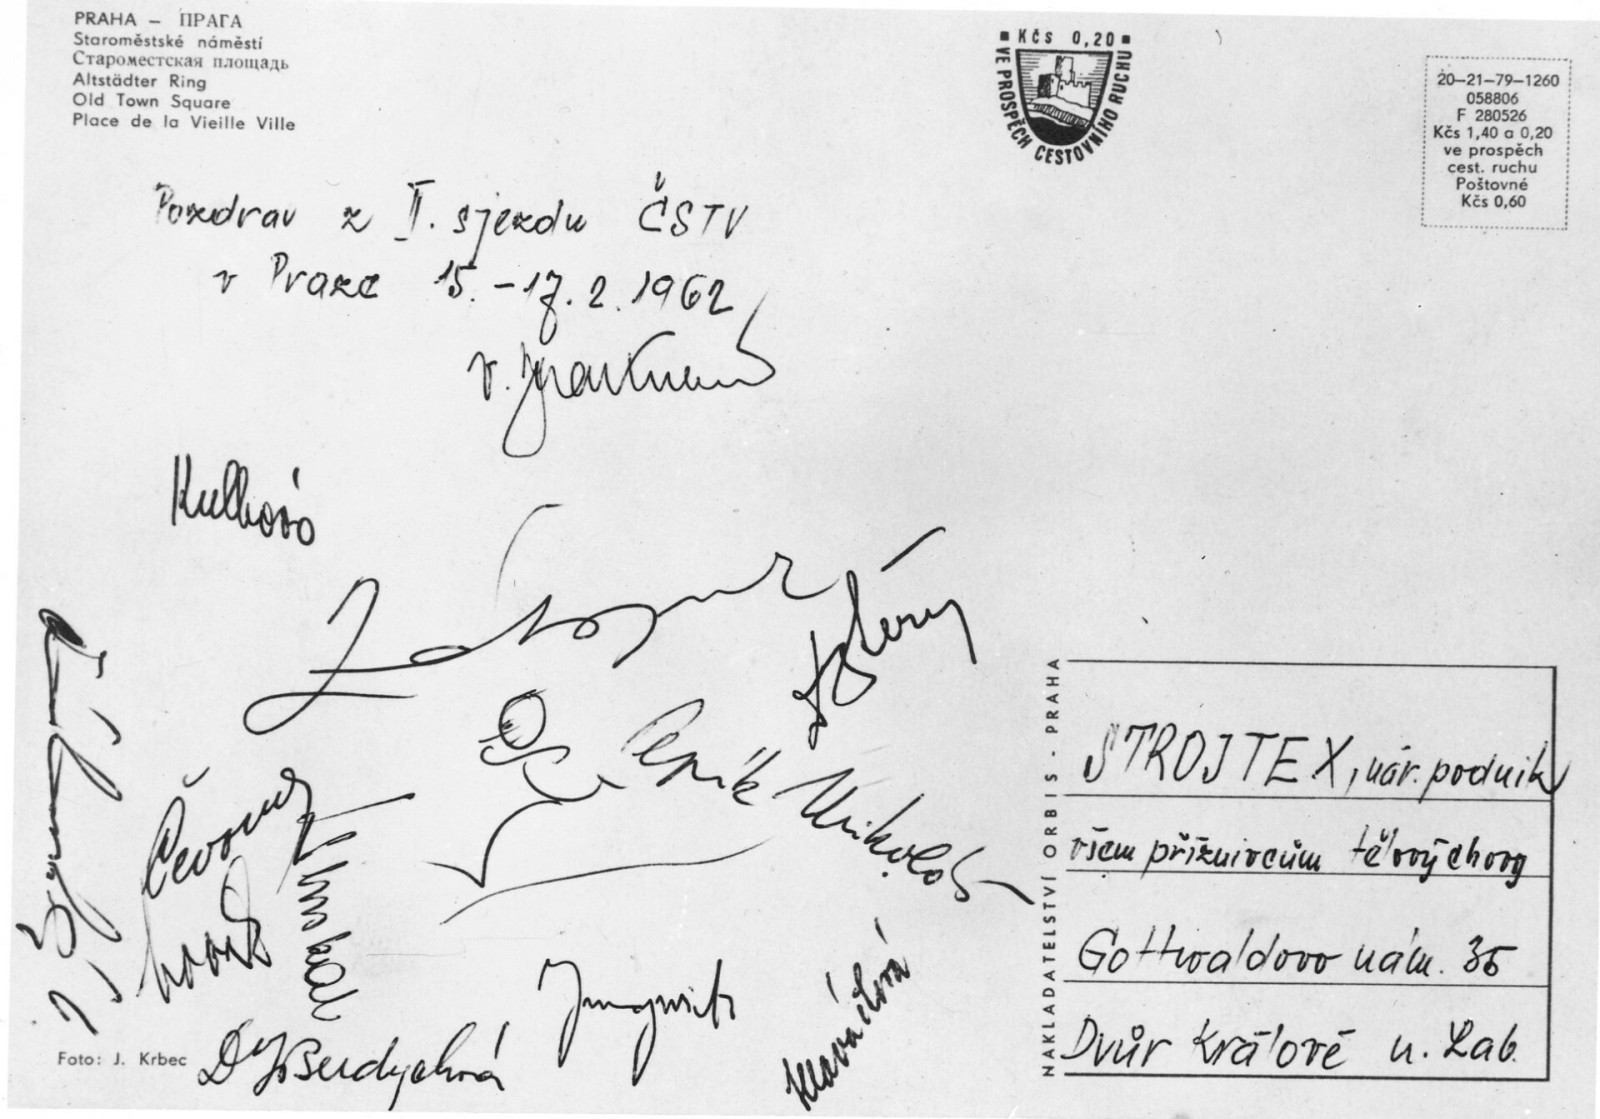 PRAHA – ПРАГА
Staroměstské náměstí
Староместская площадь
Altstädter Ring
Old Town Square
Place de la Vieille Ville
■ Kčs 0,20 ■
VE PROSPĚCH CESTOVNÍHO RUCHU
20–21–79–1260
058806
F 280526
Kčs 1,40 a 0,20
ve prospěch
cest. ruchu
Poštovné
Kčs 0,60
Pozdrav z II. sjezdu ČSTV
v Praze 15.–17.2.1962
Kulhová
Zátopek
Cepník
Mikoláš
Červený
Jungwirth
Hlaváčková
Berdychová
NAKLADATELSTVÍ ORBIS - PRAHA
STROJTEX, nár. podnik
všem příznivcům tělovýchovy
Gottwaldovo nám. 35
Dvůr Králové n. Lab.
Foto: J. Krbec